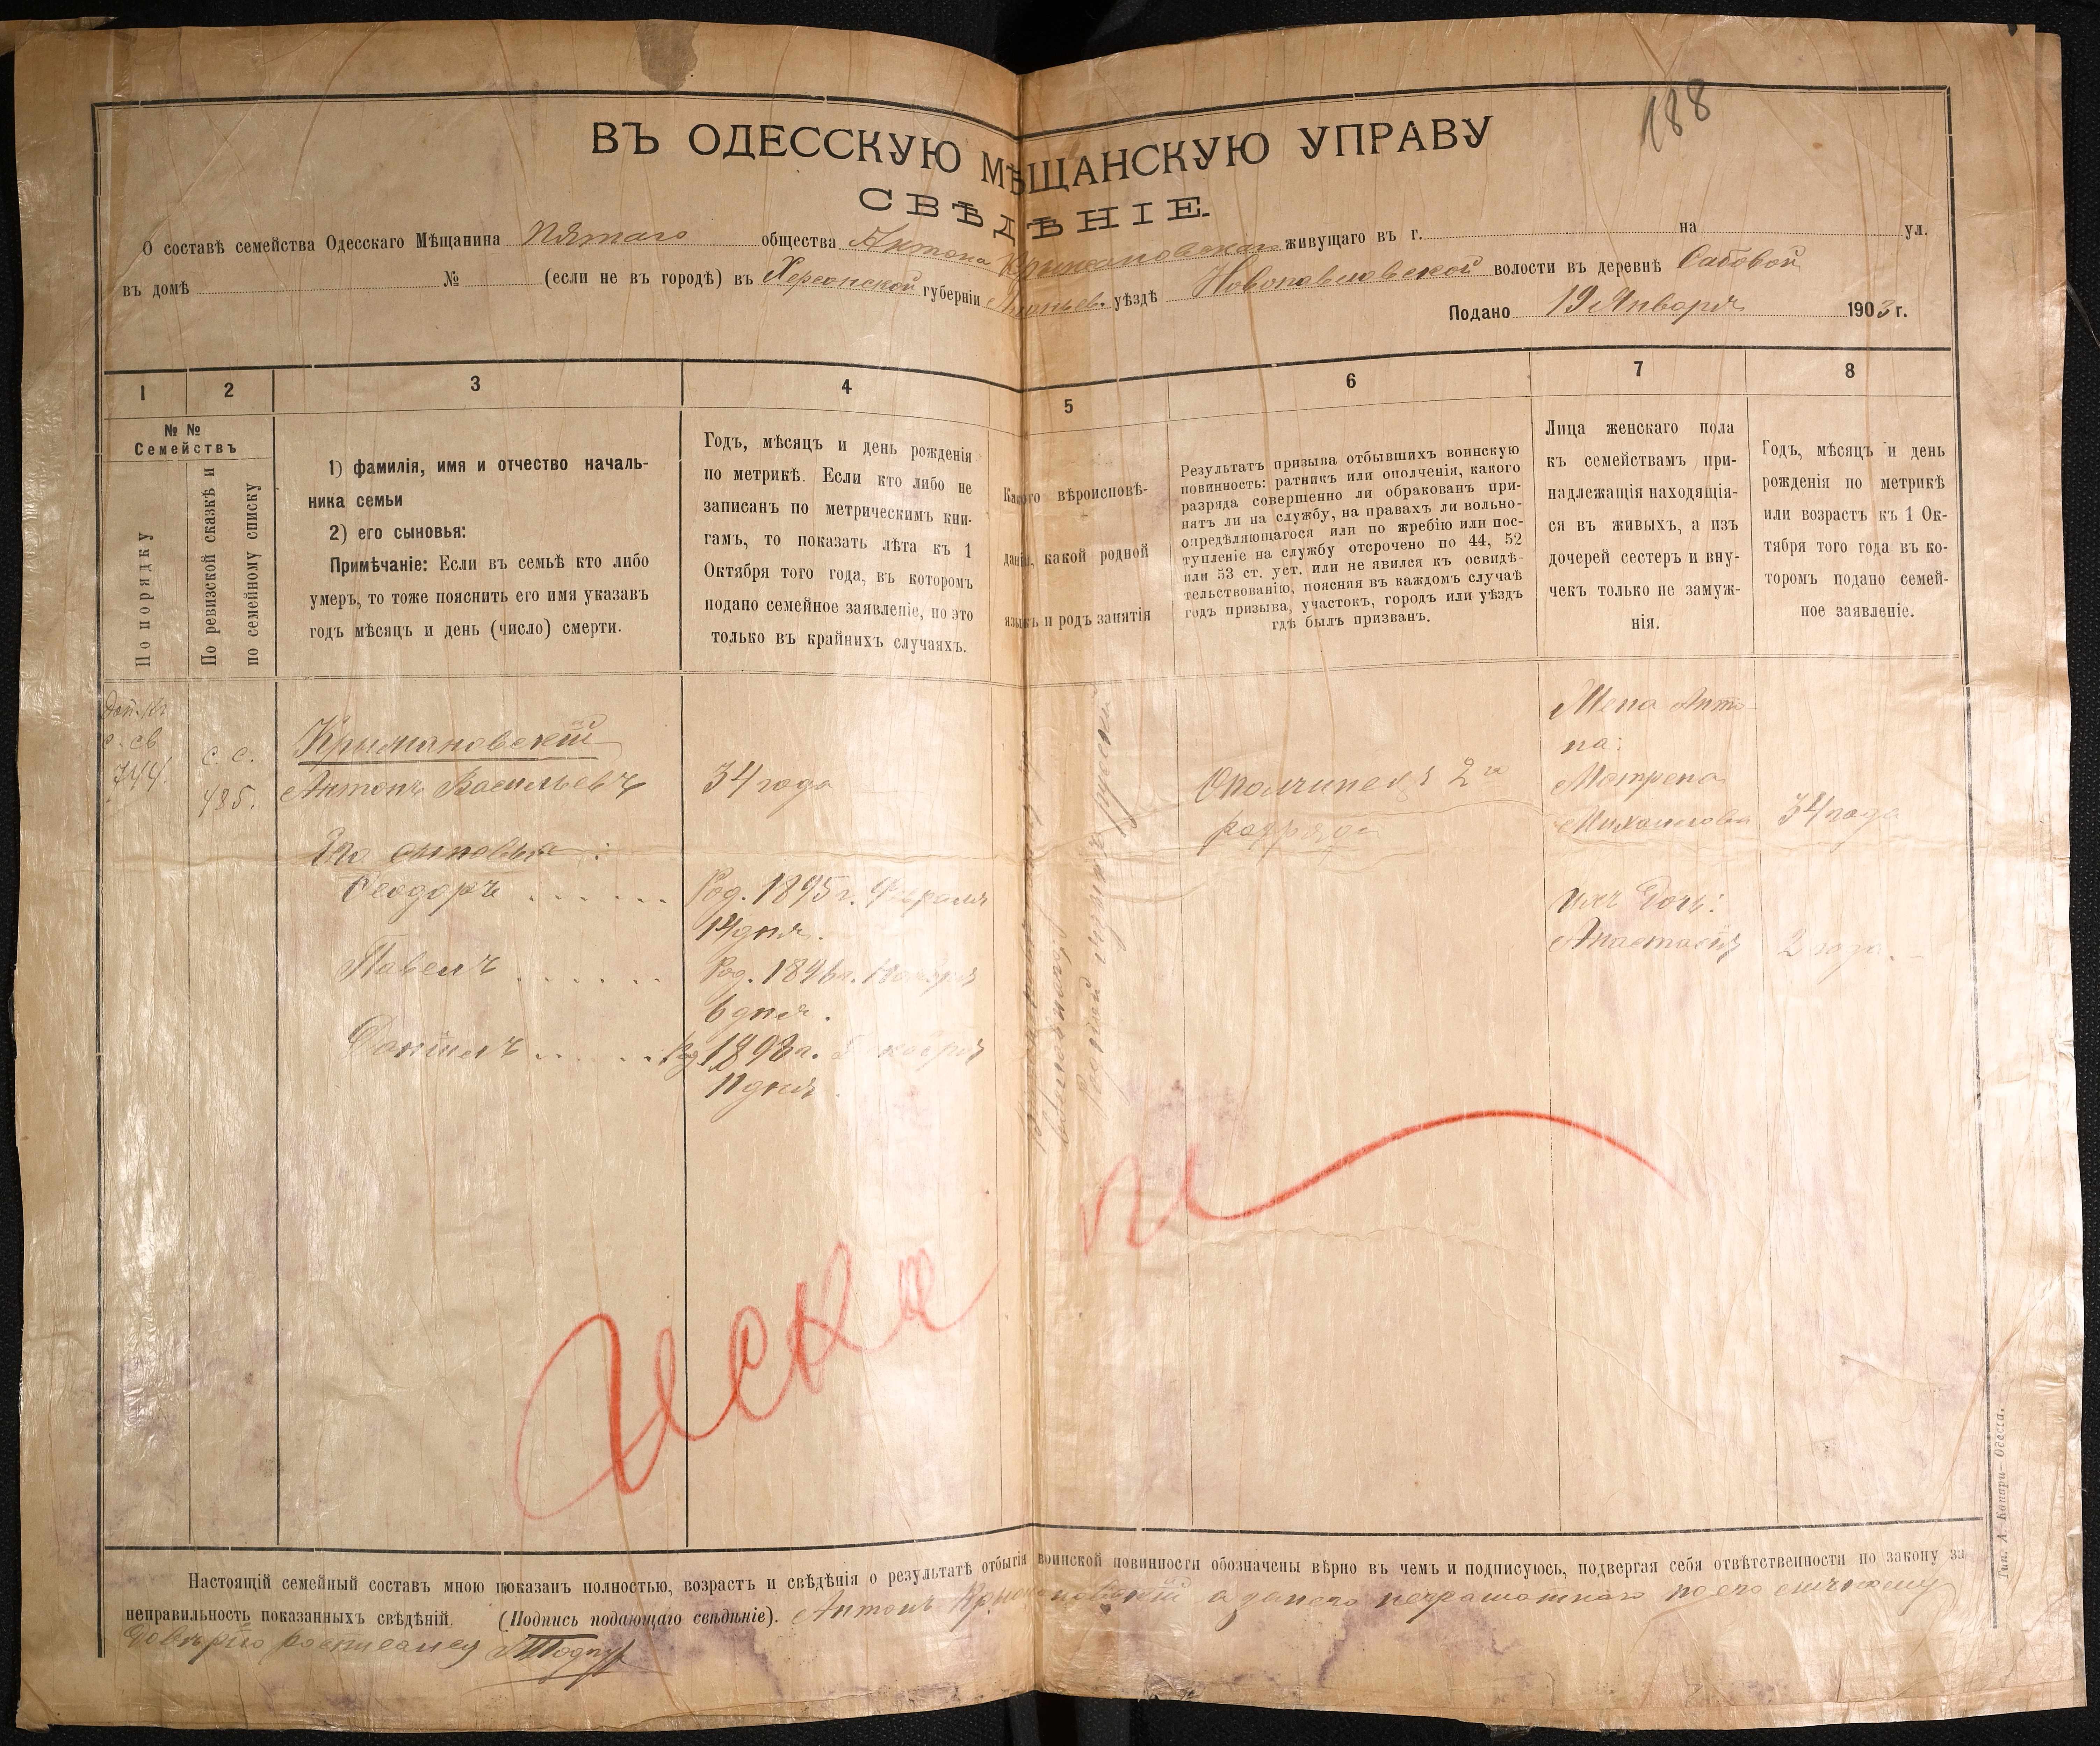 188
ВЪ ОДЕССКУЮ МѢЩАНСКУЮ УПРАВУ
СВѢДѢНІЕ
О составѣ семейства Одесскаго Мѣщанина Пятаго общества Антона Крыжановскаго живущаго въ г. на ул.
въ домѣ № (если не въ городѣ) въ Херсонской губерніи Ананьев. уѣздѣ Новопавловской волости въ деревнѣ Сабовой
Подано 19 Января 1903 г.
1 2 3 4 5 6 7 8
№ №
Семействъ
По порядку
По ревизской сказкѣ и
по семейному списку
1) фамилія, имя и отчество началь-
ника семьи
2) его сыновья:
Примѣчаніе: Если въ семьѣ кто либо
умеръ, то тоже пояснить его имя указавъ
годъ мѣсяцъ и день (число) смерти.
Годъ, мѣсяцъ и день рожденія
по метрикѣ. Если кто либо не
записанъ по метрическимъ кни-
гамъ, то показать лѣта къ 1
Октября того года, въ которомъ
подано семейное заявленіе, но это
только въ крайнихъ случаяхъ.
Какого вѣроисповѣ-
данія, какой родной
языкъ и родъ занятія
Результатъ призыва отбывшихъ воинскую
повинность: ратникъ или ополченія, какого
разряда совершенно ли обракованъ при-
нятъ ли на службу, на правахъ ли вольно-
опредѣляющагося или по жребію или пос-
тупленіе на службу отсрочено по 44, 52
или 53 ст. уст. или не явился къ освидѣ-
тельствованію, поясняя въ каждомъ случаѣ
годъ призыва, участокъ, городъ или уѣздъ
гдѣ былъ призванъ.
Лица женскаго пола
къ семействамъ при-
надлежащія находящія-
ся въ живыхъ, а изъ
дочерей сестеръ и вну-
чекъ только не замуж-
нія.
Годъ, мѣсяцъ и день
рожденія по метрикѣ
или возрастъ къ 1 Ок-
тября того года въ ко-
торомъ подано семей-
ное заявленіе.
744.
с. с.
485.
Крыжановскій
Антонъ Васильевъ
34 года
Его сыновья:
Феодоръ . . . . . .
Род. 1895 г. Февраля
14 дня.
Павелъ . . . . . .
Род. 1896 г. Ноября
6 дня.
Даніилъ . . . . . .
Род. 1898 г.
11 дня.
родной языкъ русскій
Ополченецъ 2го
разряда
Жена Анто-
на:
Мотрена
Михаилова
34 года
Ихъ дочь:
Анастасія
2 года.
Настоящій семейный составъ мною показанъ полностью, возрастъ и свѣдѣнія о результатѣ отбытія воинской повинности обозначены вѣрно въ чемъ и подписуюсь, подвергая себя отвѣтственности по закону за
неправильность показанныхъ свѣдѣній. (Подпись подающаго свѣдѣніе). Антонъ Крыжановскій а занего неграмотнаго поего личному
довѣрію росписался
Тип. А. Копари—Одесса.